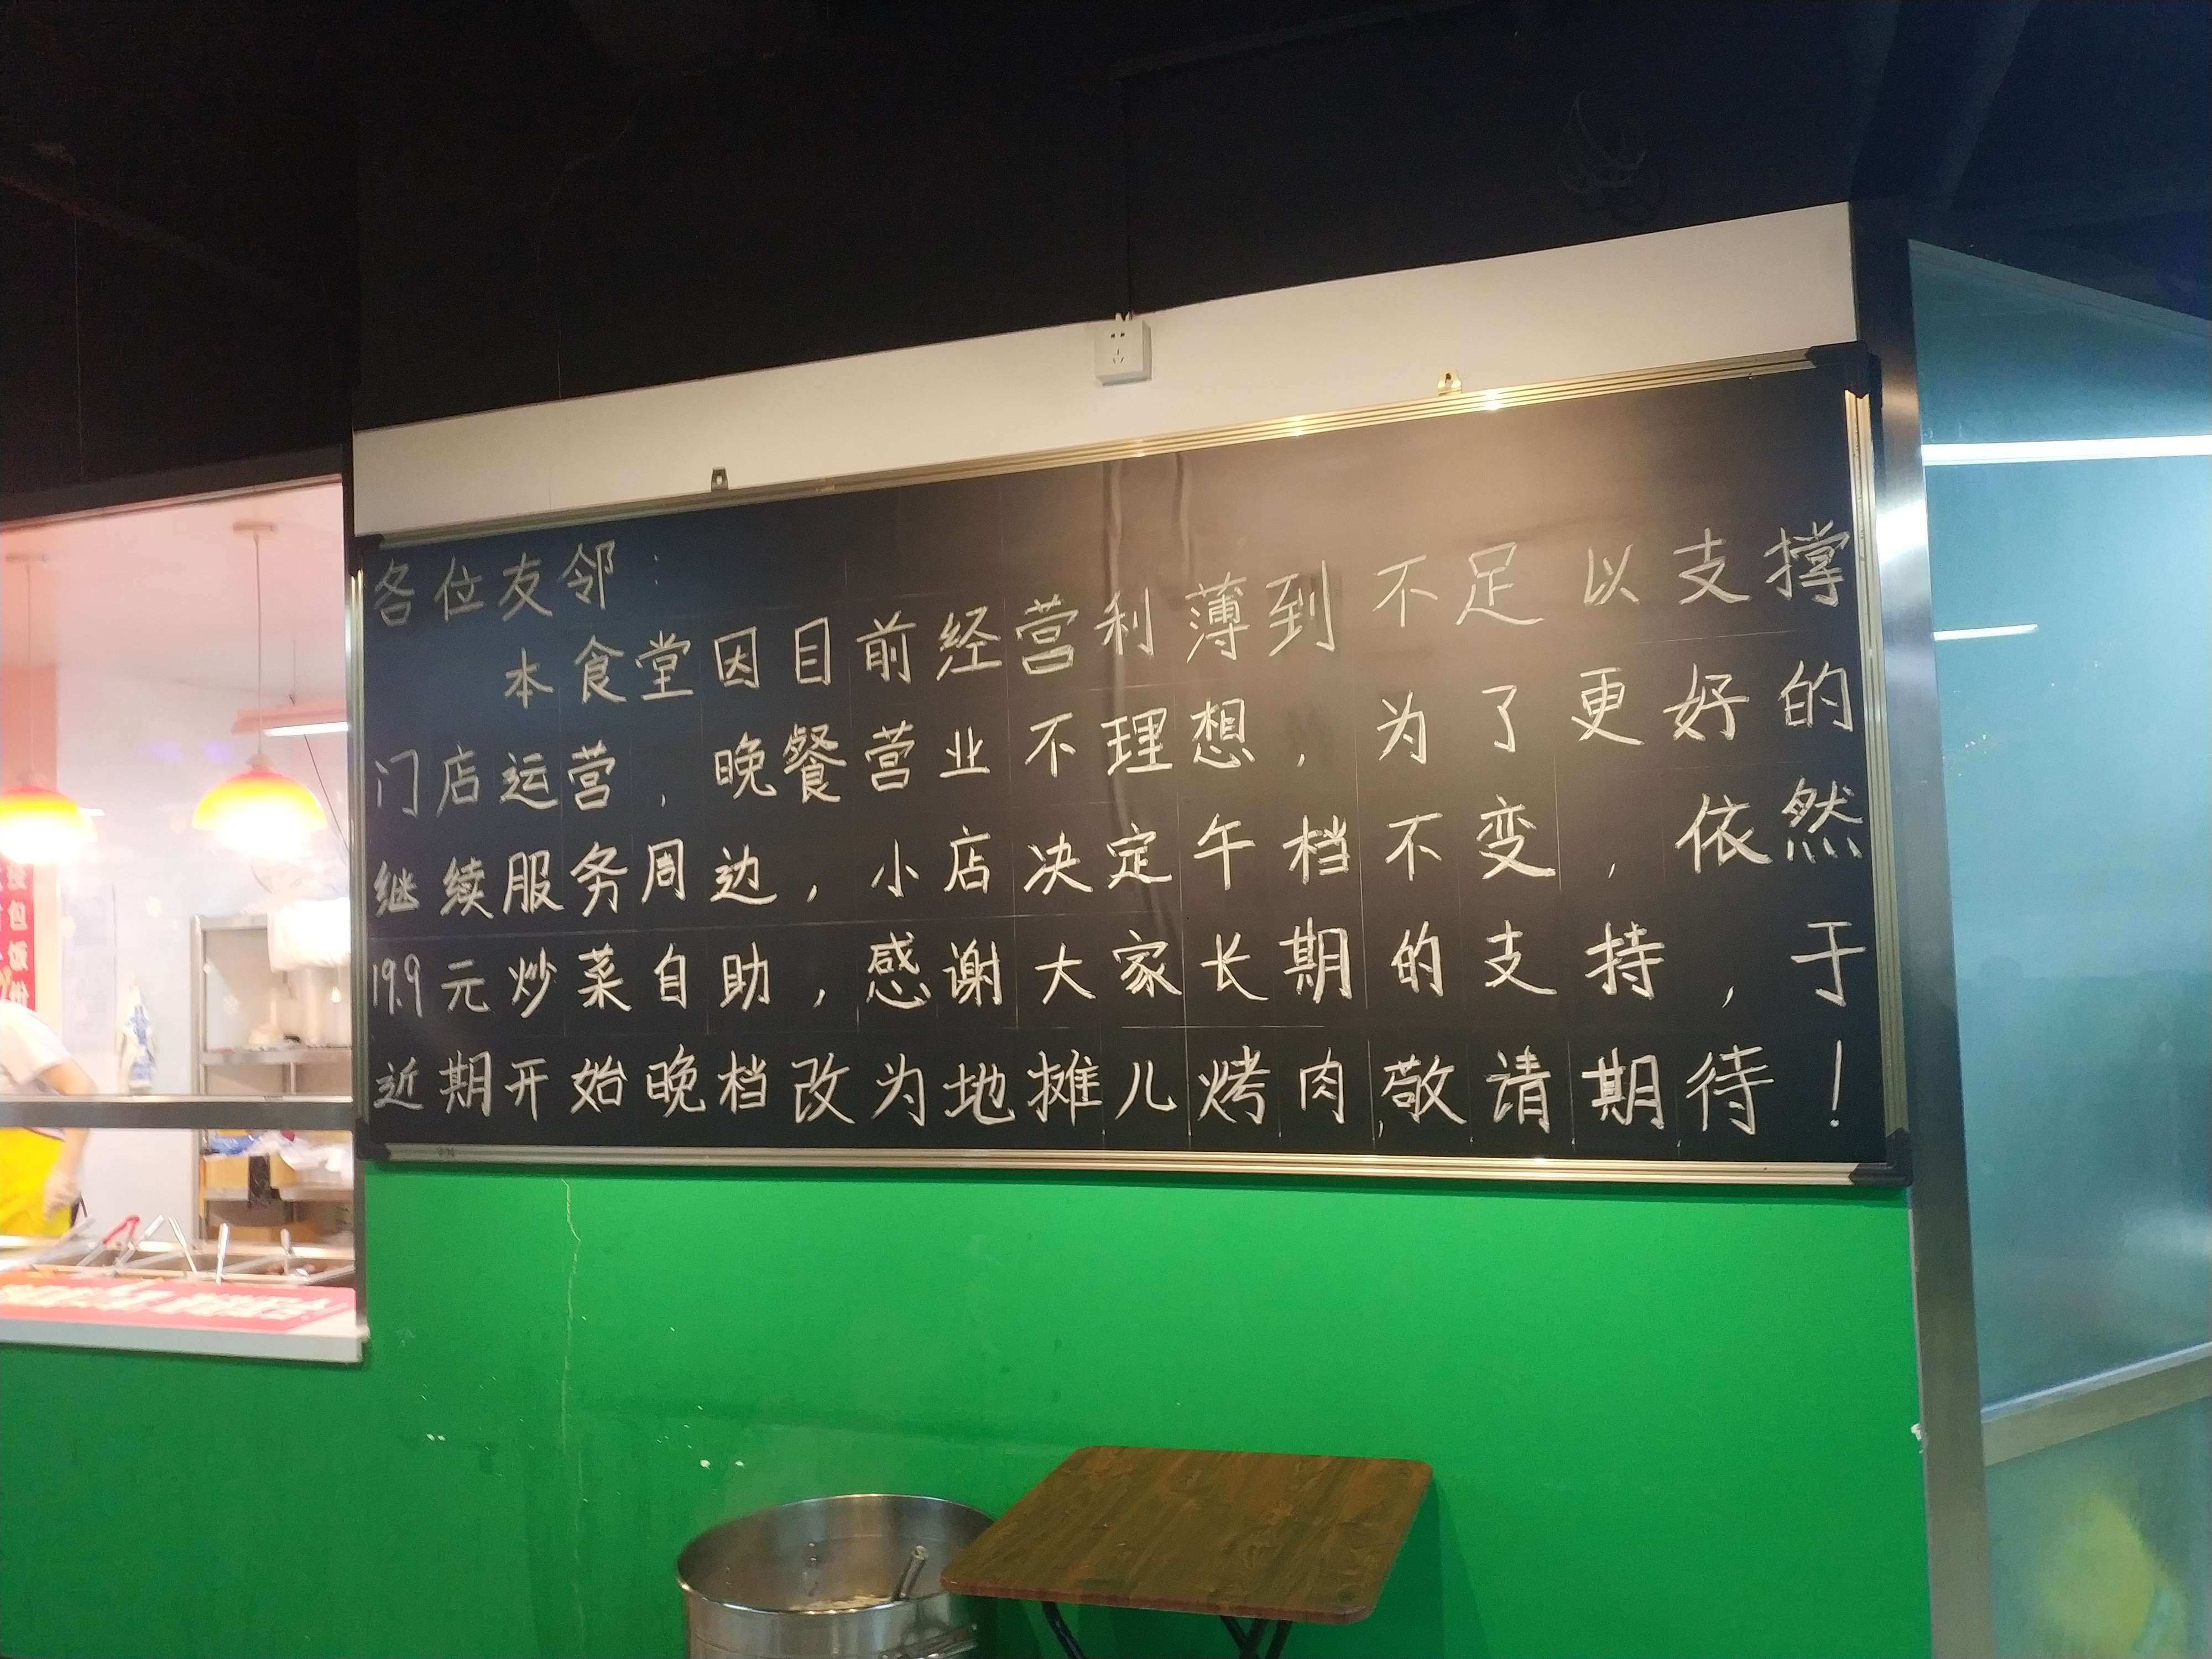 各位友邻:
本食堂因目前经营利薄到不足以支撑
门店运营,晚餐营业不理想,为了更好的
继续服务周边,小店决定午档不变,依然
19.9元炒菜自助,感谢大家长期的支持,于
近期开始晚档改为地摊儿烤肉,敬请期待!
包
饭